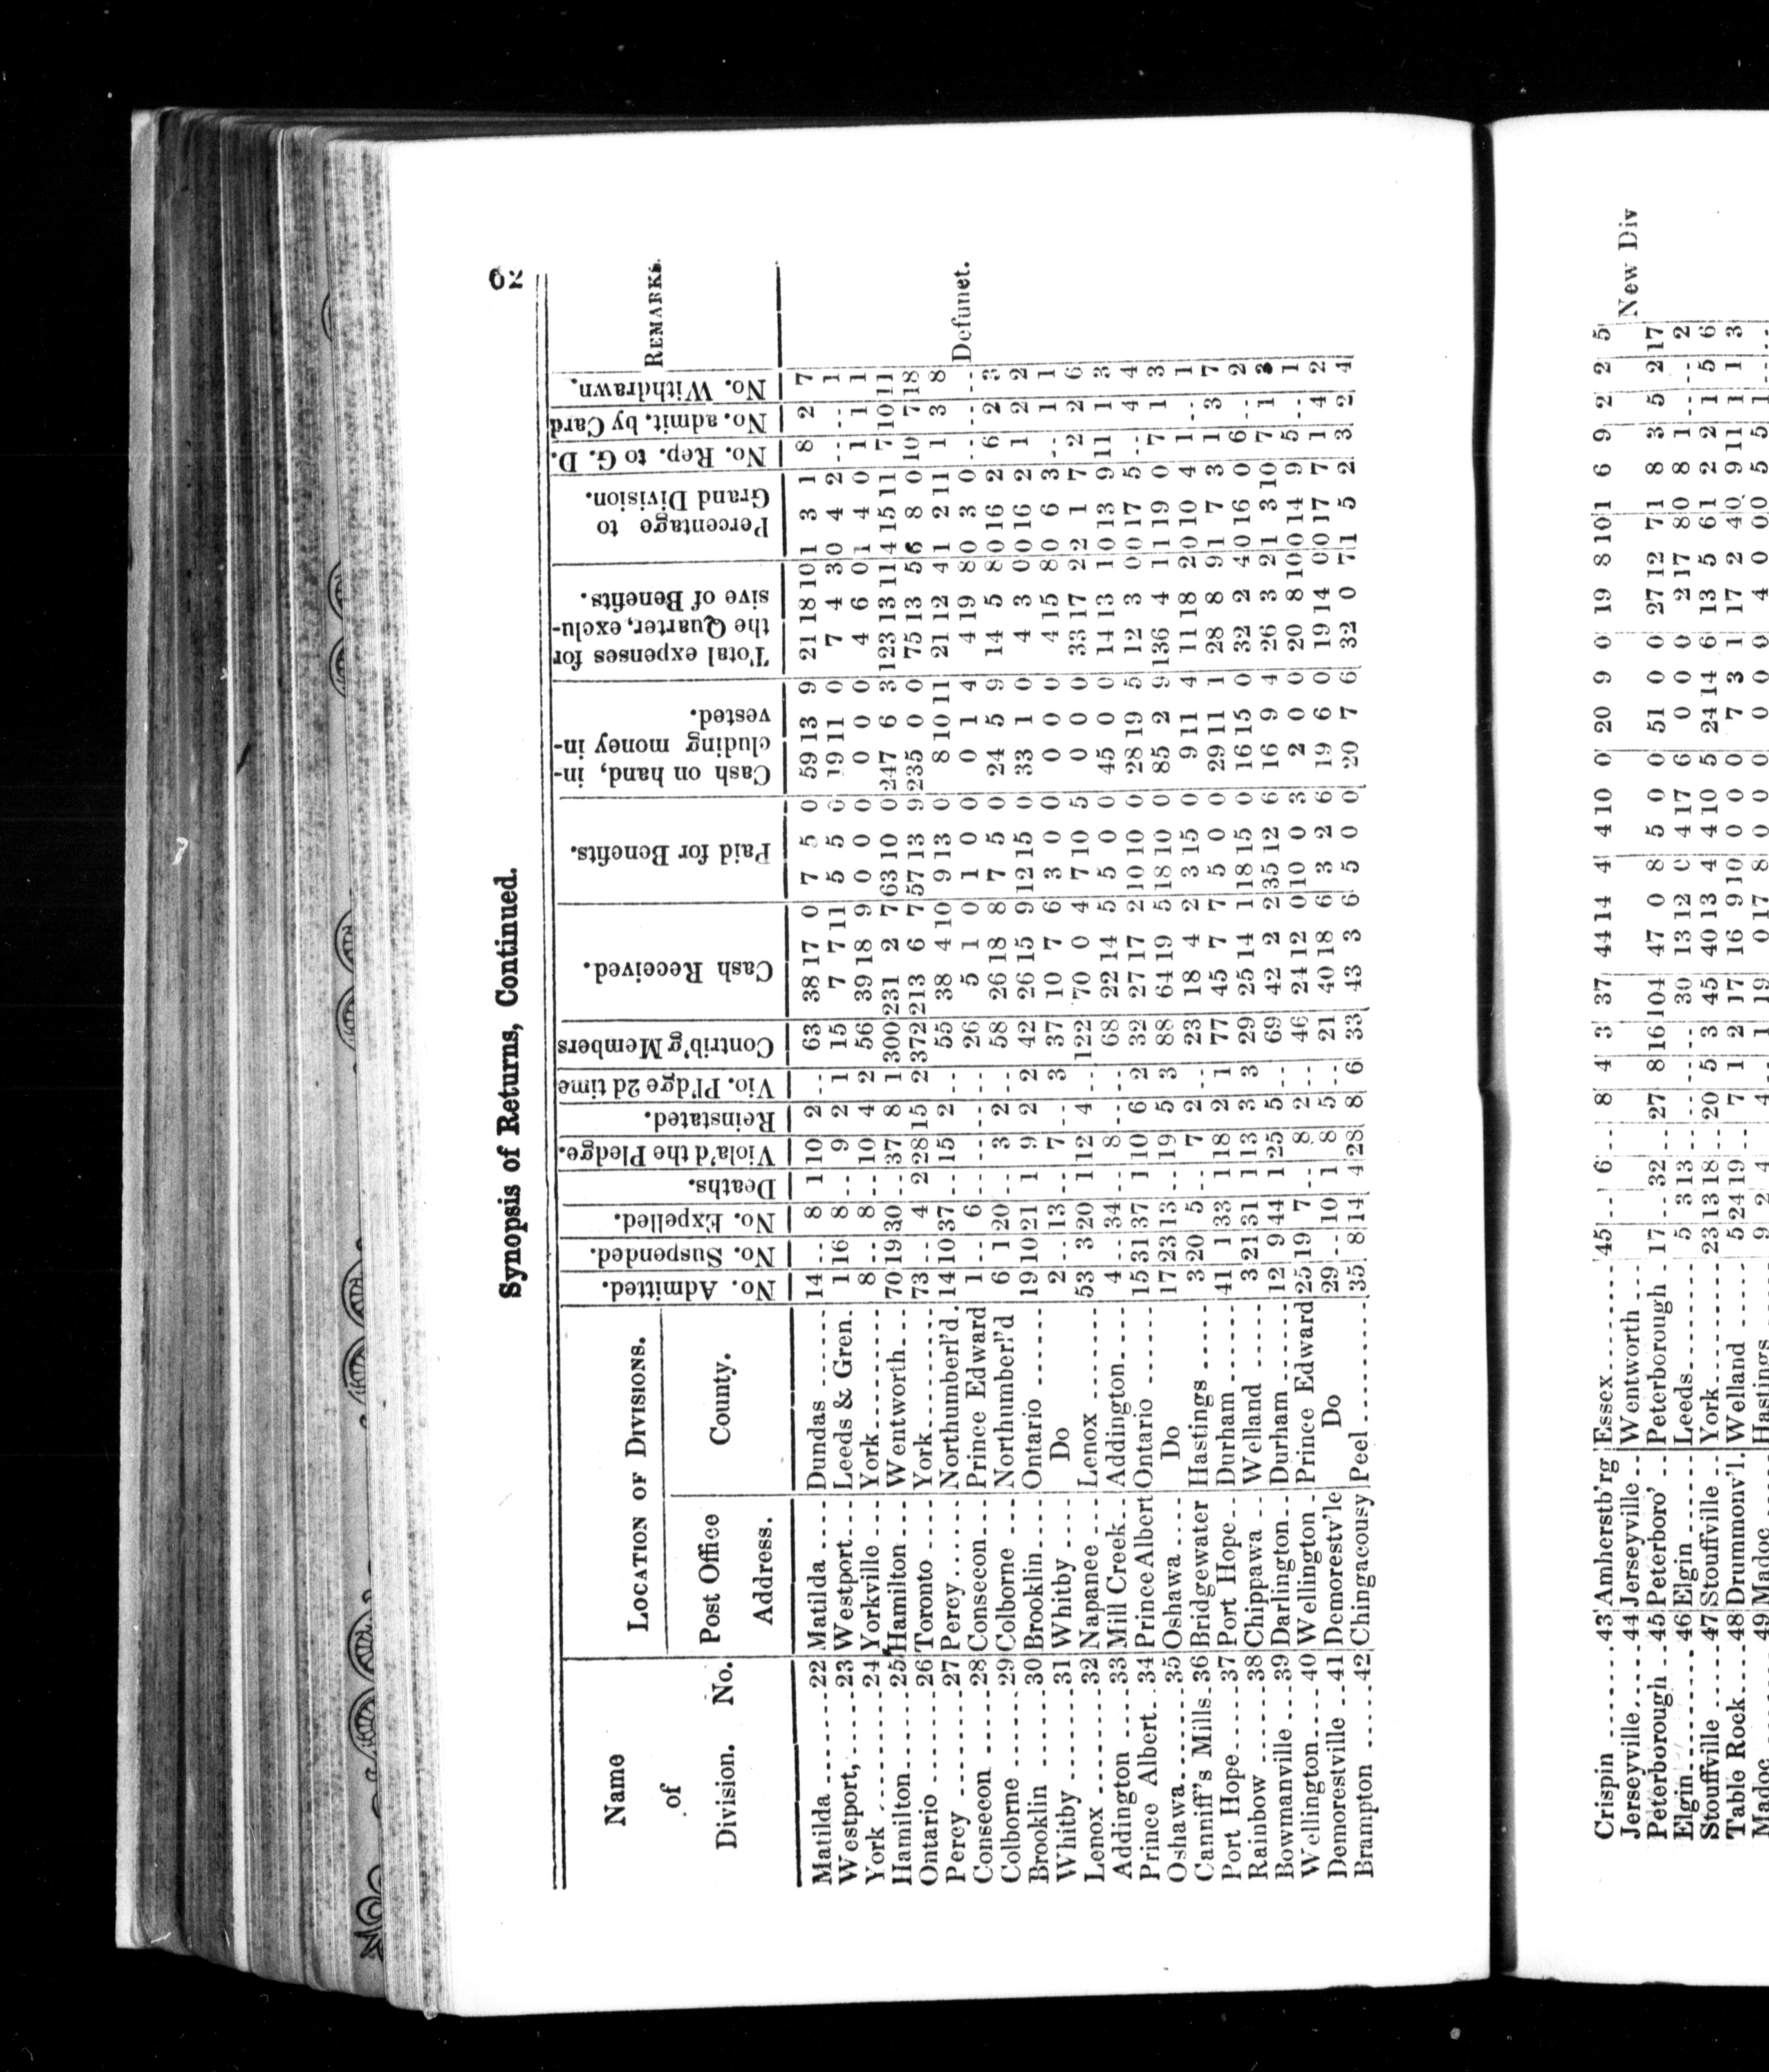 62
Synopsis of Returns, Continued.
Name of Division. No.
LOCATION OF DIVISIONS.
Post Office Address.
County.
No. Admitted.
No. Suspended.
No. Expelled.
Deaths.
Viola'd the Pledge.
Reinstated.
Vio. Pl'dge 2d time
Contrib'g Members
Cash Received.
Paid for Benefits.
Cash on hand, including money invested.
Total expenses for the Quarter, exclusive of Benefits.
Percentage to Grand Division.
No. Rep. to G. D.
No. admit. by Card
No. Withdrawn.
REMARKS.
Matilda ....... 22 Matilda .... Dundas ....... 14 .. 8 1 10 2 .. 63 38 17 0 7 5 0 59 13 9 21 18 10 1 3 1 8 2 7
Westport, .... 23 Westport... Leeds & Gren. 1 16 8 .. 9 2 1 15 7 7 11 5 5 0 19 11 0 7 4 3 0 4 2 .. .. 1
York ......... 24 Yorkville ... York .......... 8 .. 8 .. 10 4 2 56 39 18 9 0 0 0 0 0 0 4 6 0 1 4 0 1 1 1
Hamilton....... 25 Hamilton ... Wentworth... 70 19 30 .. 37 8 1 300 231 2 7 63 10 0 247 6 3 123 13 11 4 15 11 7 10 11
Ontario ....... 26 Toronto .... York ......... 73 .. 4 2 28 15 2 372 213 6 7 57 13 9 235 0 0 75 13 5 6 8 0 10 7 18
Percy ......... 27 Percy...... Northumberl'd. 14 10 37 .. 15 2 .. 55 38 4 10 9 13 0 8 10 11 21 12 4 1 2 11 1 3 8
Consecon ...... 28 Consecon... Prince Edward 1 .. 6 .. .. .. .. 26 5 1 0 1 0 0 0 1 4 4 19 8 0 3 0 .. .. .. Defunct.
Colborne ...... 29 Colborne ... Northumberl'd 6 1 20 .. 3 2 .. 58 26 18 8 7 5 0 24 5 9 14 5 8 0 16 2 6 2 3
Brooklin ...... 30 Brooklin.... Ontario ...... 19 10 21 1 9 2 2 42 26 15 9 12 15 0 33 1 0 4 3 0 0 16 2 1 2 2
Whitby ....... 31 Whitby .... Do 2 .. 13 .. 7 .. 3 37 10 7 6 3 0 0 0 0 0 4 15 8 0 6 3 .. 1 1
Lenox ........ 32 Napanee ... Lenox ........ 53 3 20 1 12 4 .. 122 70 0 4 7 10 5 0 0 0 33 17 2 2 1 7 2 2 6
Addington .... 33 Mill Creek.. Addington.... 4 .. 34 .. 8 .. .. 68 22 14 5 5 0 0 45 0 0 14 13 1 0 13 9 11 1 3
Prince Albert.. 34 Prince Albert Ontario ....... 15 31 37 1 10 6 2 32 27 17 2 10 10 0 28 19 5 12 3 0 0 17 5 .. 4 4
Oshawa....... 35 Oshawa .... Do 17 23 13 .. 19 5 3 88 64 19 5 18 10 0 85 2 9 136 4 1 1 19 0 7 1 3
Canniff's Mills. 36 Bridgewater Hastings ..... 3 20 5 .. 7 2 .. 23 18 4 2 3 15 0 9 11 4 11 18 2 0 10 4 1 .. 1
Port Hope..... 37 Port Hope.. Durham ...... 41 1 33 1 18 2 1 77 45 7 7 5 0 0 29 11 1 28 8 9 1 7 3 1 3 7
Rainbow ...... 38 Chippawa .. Welland ..... 3 21 31 1 13 3 3 29 25 14 1 18 15 0 16 15 0 32 2 4 0 16 0 6 .. 2
Bowmanville ... 39 Darlington.. Durham...... 12 9 44 1 25 5 .. 69 42 2 2 35 12 6 16 9 4 26 3 2 1 3 10 7 1
Wellington.... 40 Wellington . Prince Edward 25 19 7 .. 8 2 .. 46 24 12 0 10 0 3 2 0 0 20 8 10 0 14 9 5 .. 1
Demorestville .. 41 Demorestv'le Do 29 .. 10 1 8 5 .. 21 40 18 6 3 2 6 19 6 0 19 14 0 0 17 7 1 4 2
Brampton ..... 42 Chingacousy Peel ......... 35 8 14 4 28 8 6 33 43 3 6 5 0 0 20 7 6 32 0 7 1 5 2 3 2 4
Crispin ....... 43 Amherstb'rg Essex........ 45 .. 6 .. 8 4 3 37 44 14 4 4 10 0 20 9 0 19 8 10 1 6 9 2 2 5
Jerseyville..... 44 Jerseyville .. Wentworth ... New Div
Peterborough .. 45 Peterboro' .. Peterborough . 17 .. 32 .. 27 8 16 104 47 0 8 5 0 0 51 0 0 27 12 7 1 8 3 5 2 17
Elgin......... 46 Elgin ....... Leeds........ 5 3 13 .. .. .. .. 30 13 12 0 4 17 6 0 0 0 2 17 8 0 8 1 .. .. 2
Stouffville ..... 47 Stouffville .. York......... 23 13 18 .. 20 5 3 45 40 13 4 4 10 5 24 14 6 13 5 6 1 2 2 1 5 6
Table Rock.... 48 Drummonv'l. Welland ..... 5 24 19 .. 7 1 2 17 16 9 10 0 0 0 7 3 1 17 2 4 0 9 11 1 1 3
Madoc 49 Madoc Hastings 9 2 4 4 .. 1 19 0 17 8 0 0 0 0 0 0 4 0 0 0 5 5 1 ..